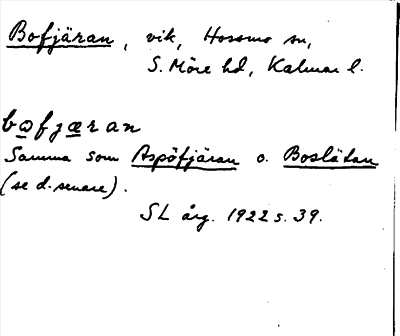 Bofjäran, vik, Hossmo sn,
S. Möre hd, Kalmar l.
bofjæran
Samma som Aspöfjäran o. Boslätan
(se d. senare).
SL årg. 1922 s. 39.